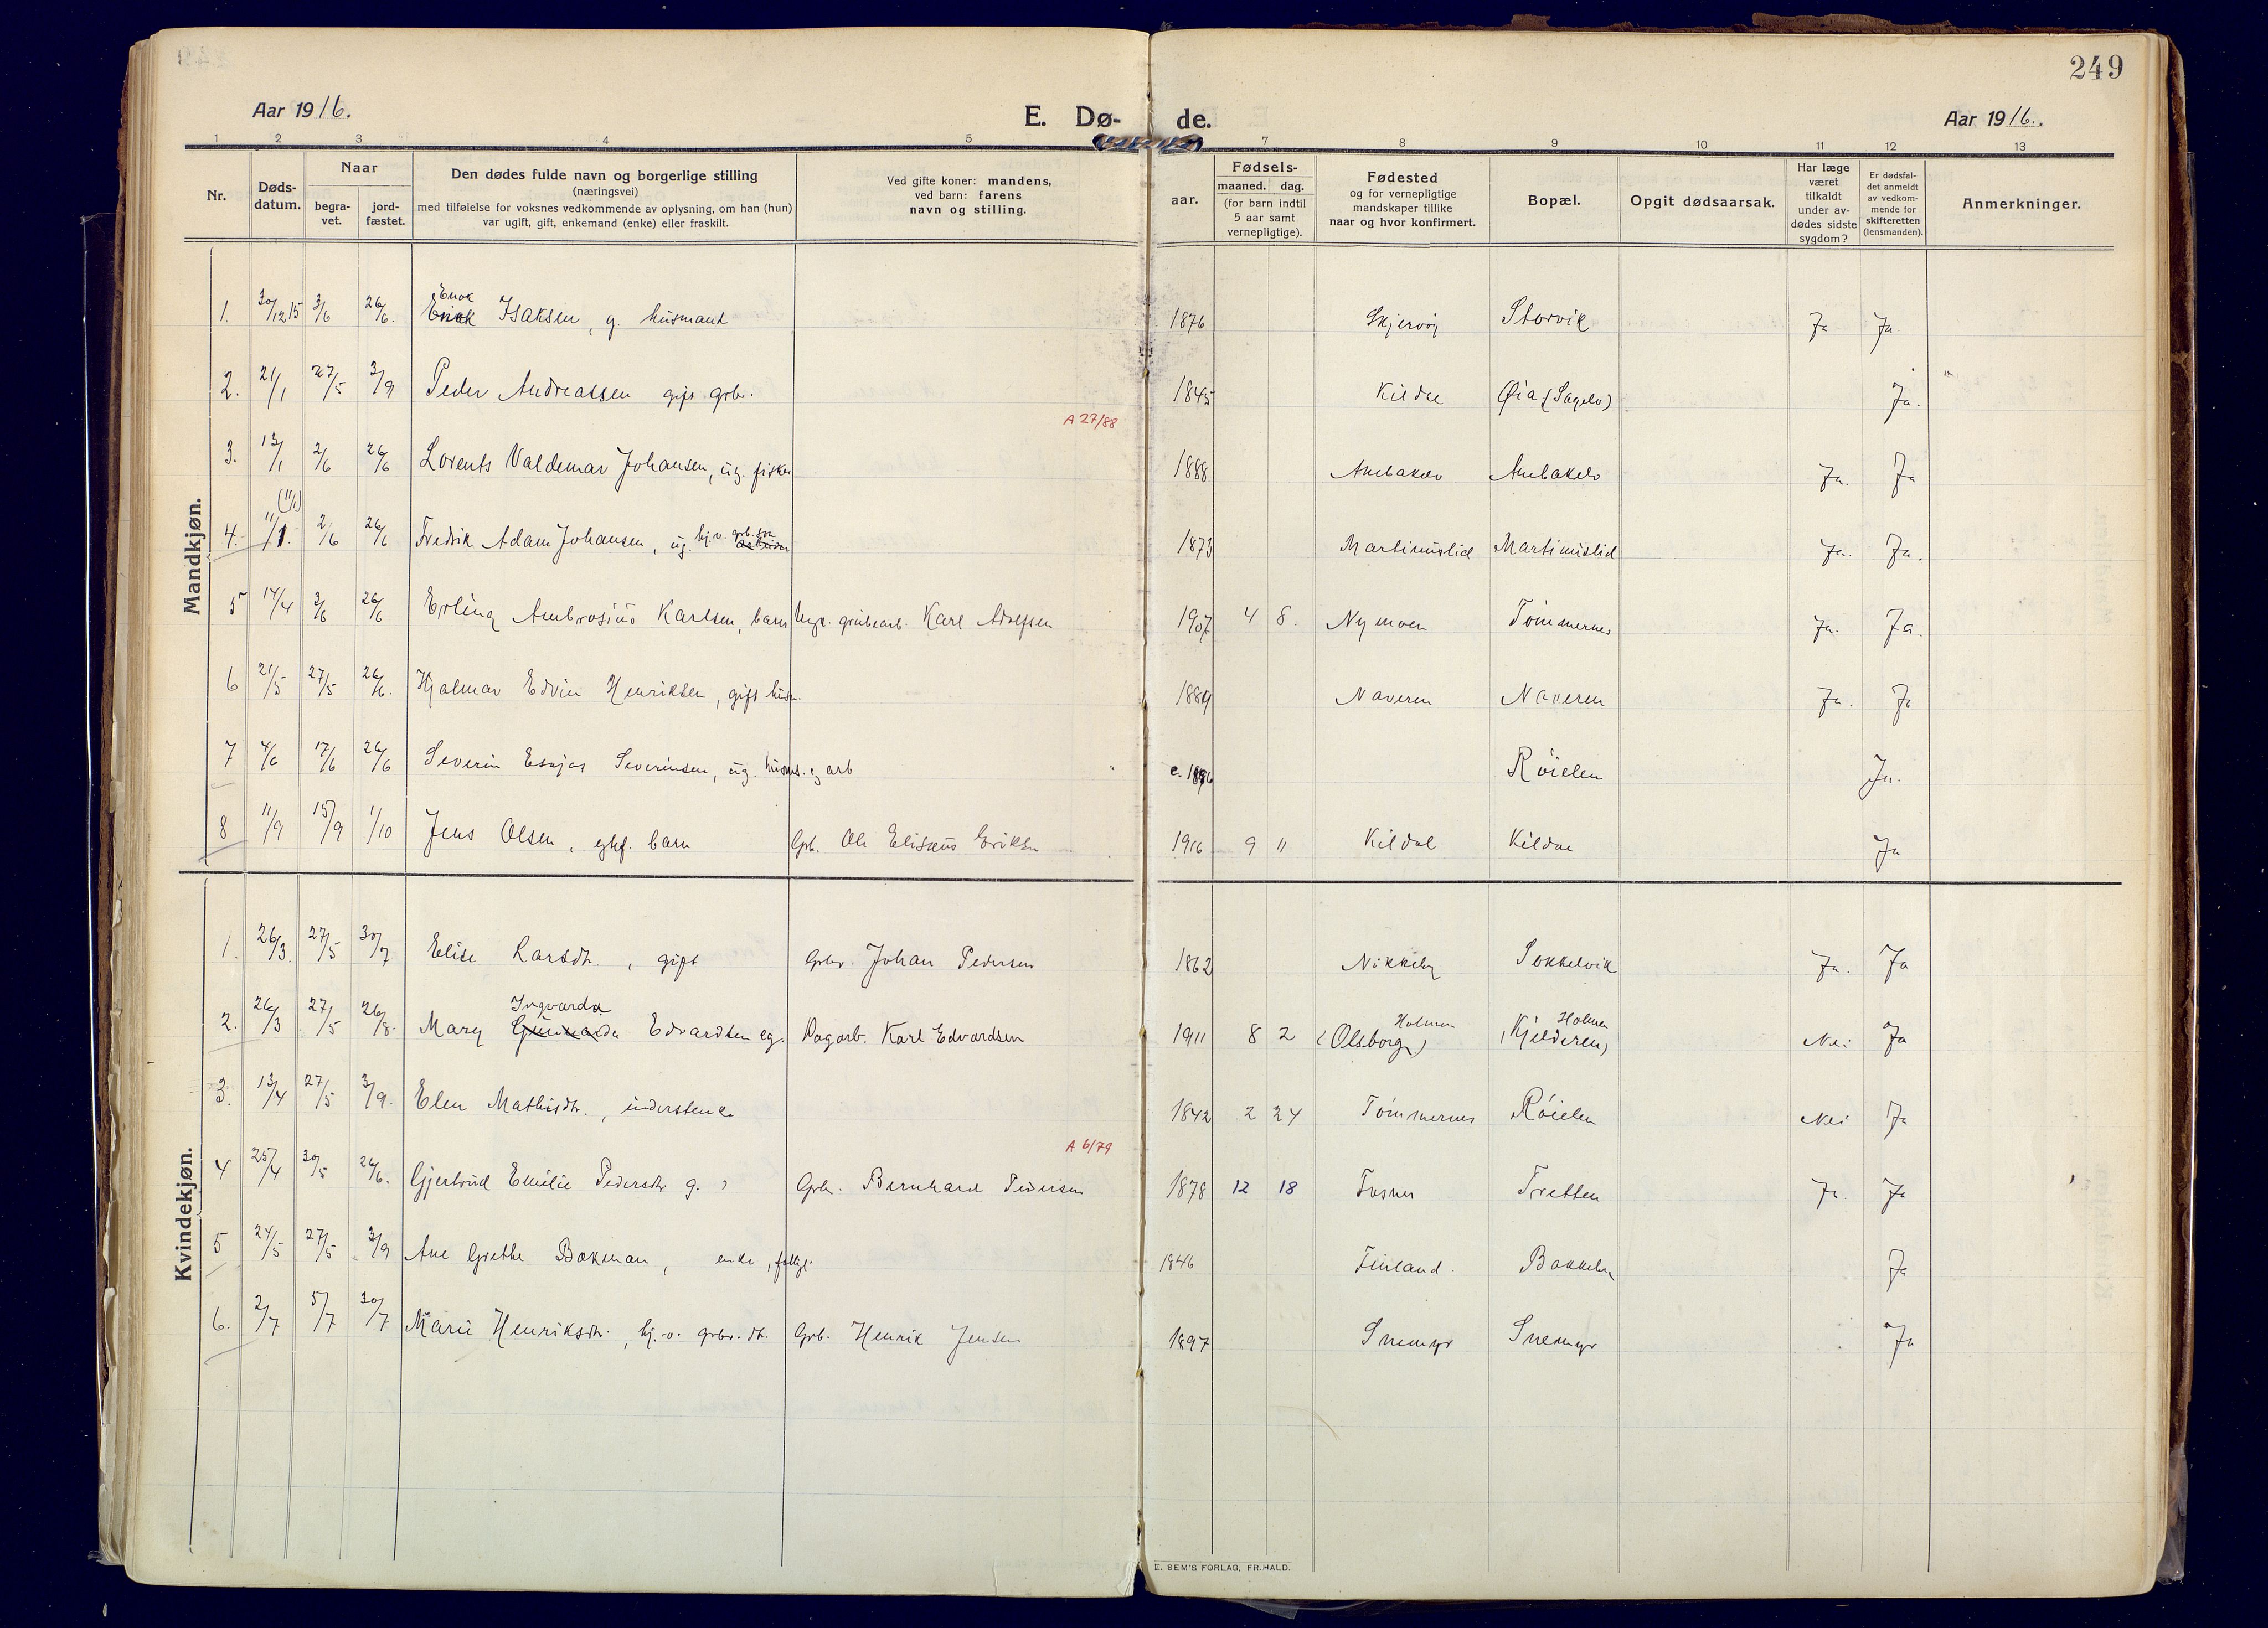 249
Aar 1916.
E. Dø- de.
Aar 1916.
1 2 3 4 5 7 8 9 10 11 12 13
Nr.
Døds-
datum.
Naar
begra-
vet.
jord-
fæstet.
Den dødes fulde navn og borgerlige stilling
(næringsvei)
med tilføielse for voksnes vedkommende av oplysning, om han (hun)
var ugift, gift, enkemand (enke) eller fraskilt.
Ved gifte koner: mandens,
ved barn: farens
navn og stilling.
aar.
Fødsels-
maaned. dag.
(for barn indtil
5 aar samt
vernepligtige).
Fødested
og for vernepligtige
mandskaper tillike
naar og hvor konfirmert.
Bopæl.
Opgit dødsaarsak.
Har læge
været
tilkaldt
under av-
dødes sidste
sygdom?
Er dødsfal-
det anmeldt
av vedkom-
mende for
skifteretten
(lensmanden).
Anmerkninger.
Mandkjøn.
Enok
1. 30/12 15 3/6 26/6. Isaksen, g. husmand 1876 Skjervøy Storvik Ja Ja.
2. 21/1 27/5 3/9 Peder Andreassen gift grb. 1845 Kildal Øia (Sagelv) Ja.
A 27/88
3. 13/1 2/6 26/6 Lorents Valdemar Johansen, ug. fisker 1888 Ja. Ja
(11/1)
4. 11/1. 2/6 26/6 Fredrik Adam Johansen, ug. hj.v. grb. søn arbeider 1873 Martinuslid Martinuslid Ja. Ja.
5 14/4 3/6 26/6 Erling Ambrosius Karlsen, barn grubearb. Karl Adolfsen 1907 4 8. Nymoen Tømmernes Ja. Ja.
6 21/5 27/5 26/6. Hjalmar Edvin Henriksen, gift husm. 1889 Naveren Naveren Ja. Ja
7 4/6 17/6 26/6 Severin Severinsen, ug. husms. og arb Røielen Ja.
8 11/9 15/9 1/10 Jens Olsen, ekf. barn Grb. Ole Elisæus Eriksen 1916 9 11 Kildal Kildal Ja
Kvindekjøn.
1. 26/3. 27/5 30/7 Elise Larsdtr., gift Grbr. Johan Pedersen 1862 Nikkeby Sokkelvik Ja. Ja
Ingvarda Holmen Holmen
2. 26/3 27/5 26/8. Mary Edvardsen eg. Dagarb. Karl Edvardsen 1911 8 2 (Olsborg) (Kjelderen) Nei Ja
3. 13/4 27/5 3/9. Elen Mathisdtr., inderstenke 1842 2 24 Tømmernes Røielen Nei Ja
A 6/79
4 25/4 30/5 26/6. Gjertrud Emilie Pedersdtr g. Grbr. Bernhard Pedersen 1878 12 18 Fosnes Tretten Ja. Ja
5 24/5 27/5 3/9 Ane Grethe Bakman, enke, fattigl. 1846 Finland. Bakkeby Ja
6. 2/7 5/7 30/7 Marie Henriksdtr., hj.v. grbr. dt. Grb. Henrik Jensen 1897 Snemyr Snemyr Ja
E. SEM'S FORLAG, FR.HALD.